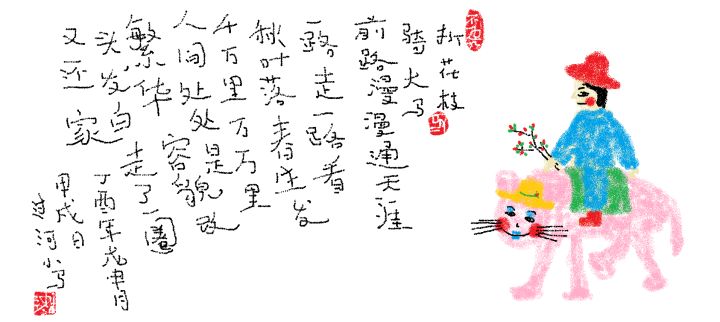 折花枝
骑大马
前路漫漫通天涯
一路走一路看
秋叶落春生发
千万里万万里
人间处处是
繁华
容貌改
走了一圈
头发白
又还家
丁酉年戊申月
甲戌日
过河小马